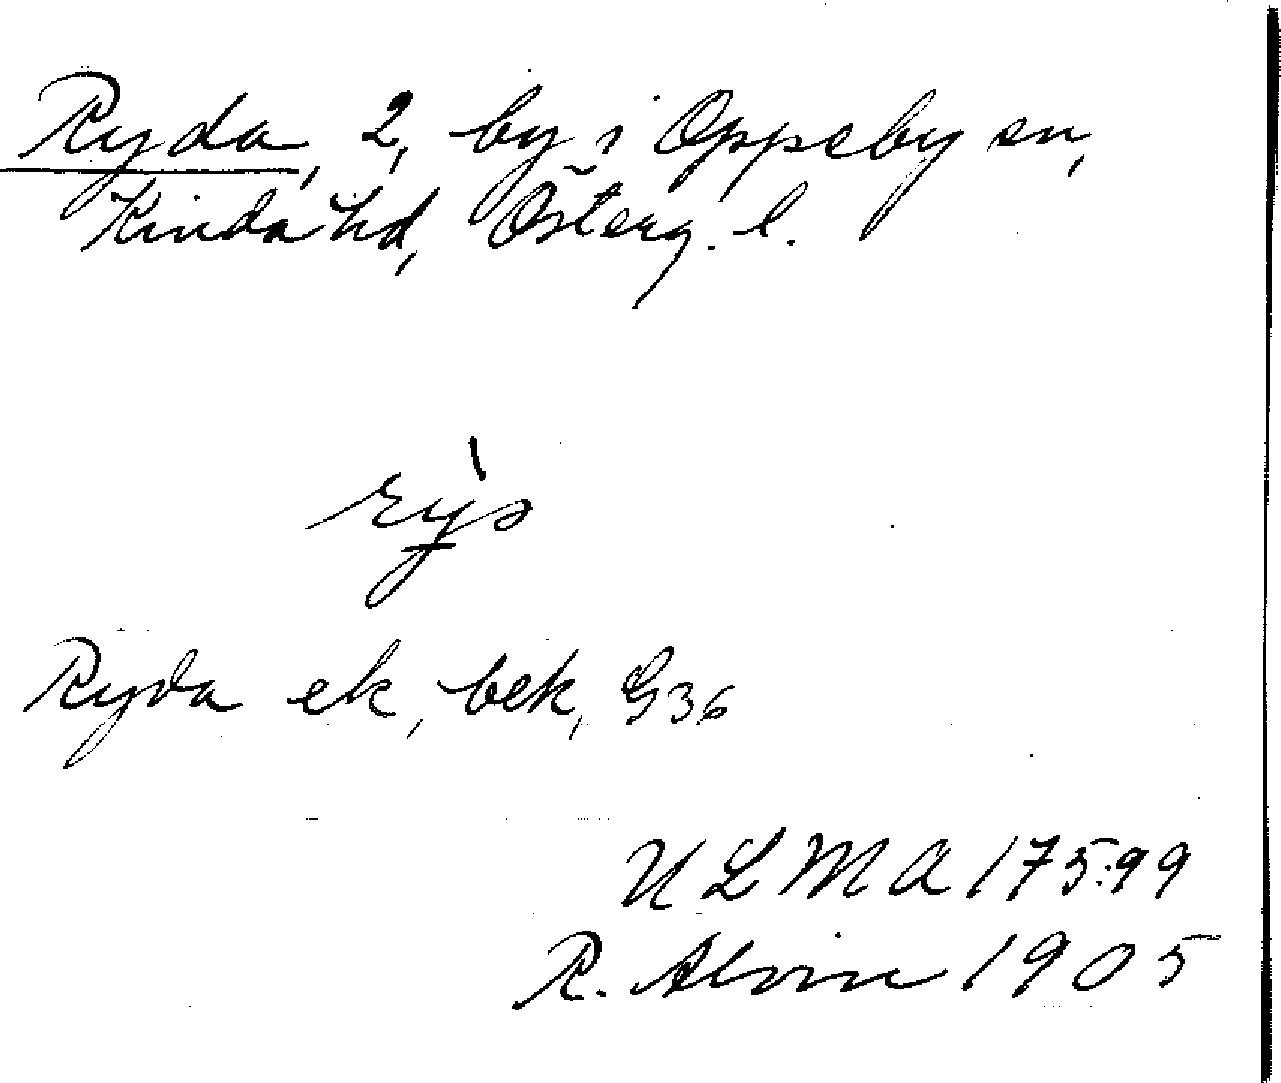 Ryda, 2, by i Oppeby sn,
Kinda hd, Österg. l.
Ryda ek, bek, G36
ULMA 175:99
R. Alvin 1905